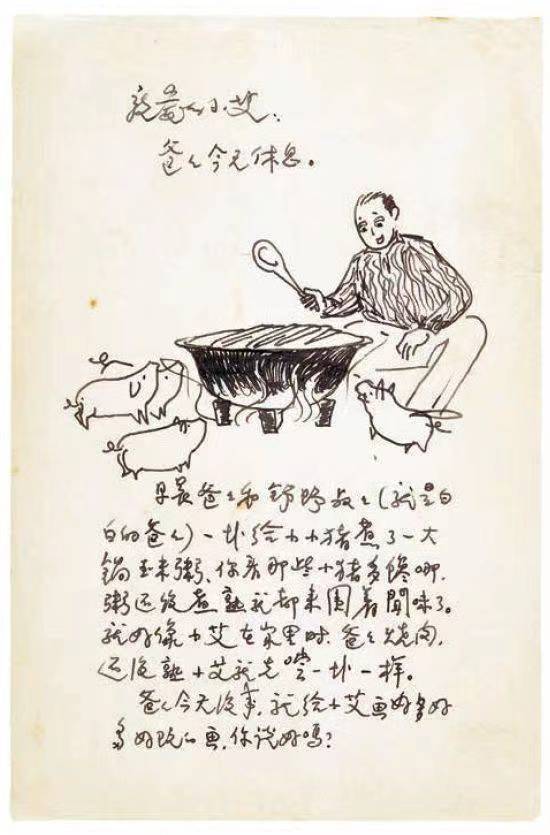 亲爱的小艾：
爸爸今天休息。
早晨爸爸和舒野叔叔（就是白
白的爸爸）一块给小小猪煮了一大
锅玉米粥、你看那些小猪多馋哪，
粥还没煮熟就都来围着闻味了。
就好像小艾在家里时，爸爸烧肉，
还没熟小艾就先尝一块一样。
爸爸今天没事，就给小艾画好多好
多好玩的画，你说好吗？